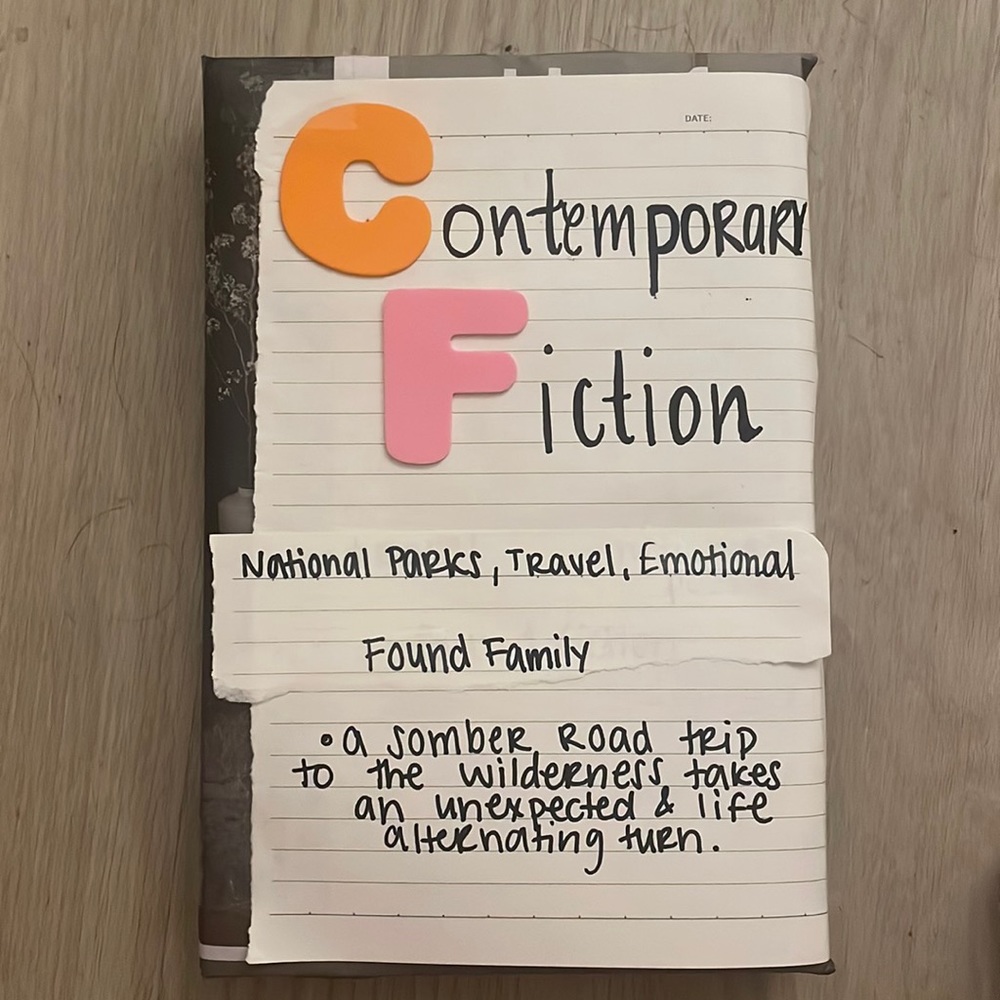 DATE:
Contemporary
Fiction
National Parks, Travel, Emotional
Found Family
• a somber road trip
to the wilderness takes
an unexpected & life
alternating turn.